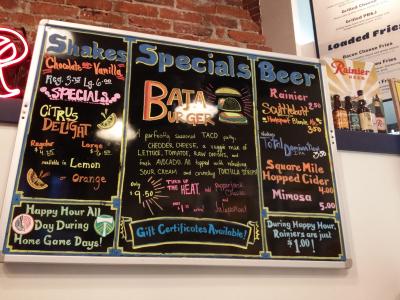 Shakes
Chocolate or Vanilla
Reg. 5.75 Lg. 6.00
SPECIALS
CITRUS
DELIGHT
Regular Large
available in Lemon
or Orange
Happy Hour All
Day During
Home Game Days!
Specials
BAJA
BURGER
A perfectly seasoned TACO patty,
CHEDDER CHEESE, a veggie mix of
LETTUCE, TOMATOES, RAW ONIONS, and
fresh AVOCADO. All topped with refreshing
SOUR CREAM and crunchy TORTILLA STRIPS
Only
$9.50
TURN UP
THE HEAT,
add
Pepperjack
Cheese
and
Jalapeños!
Gift Certificates Available!
Beer
Rainier
2.50
3.50
Total Domination
IPA
3.50
Square Mile
Hopped Cider
4.00
Mimosa
5.00
During Happy Hour,
Rainiers are just
$1.00!
R
Grilled Cheese
Grilled PB&J
Loaded Fries
Bacon Cheese Fries
Rainier